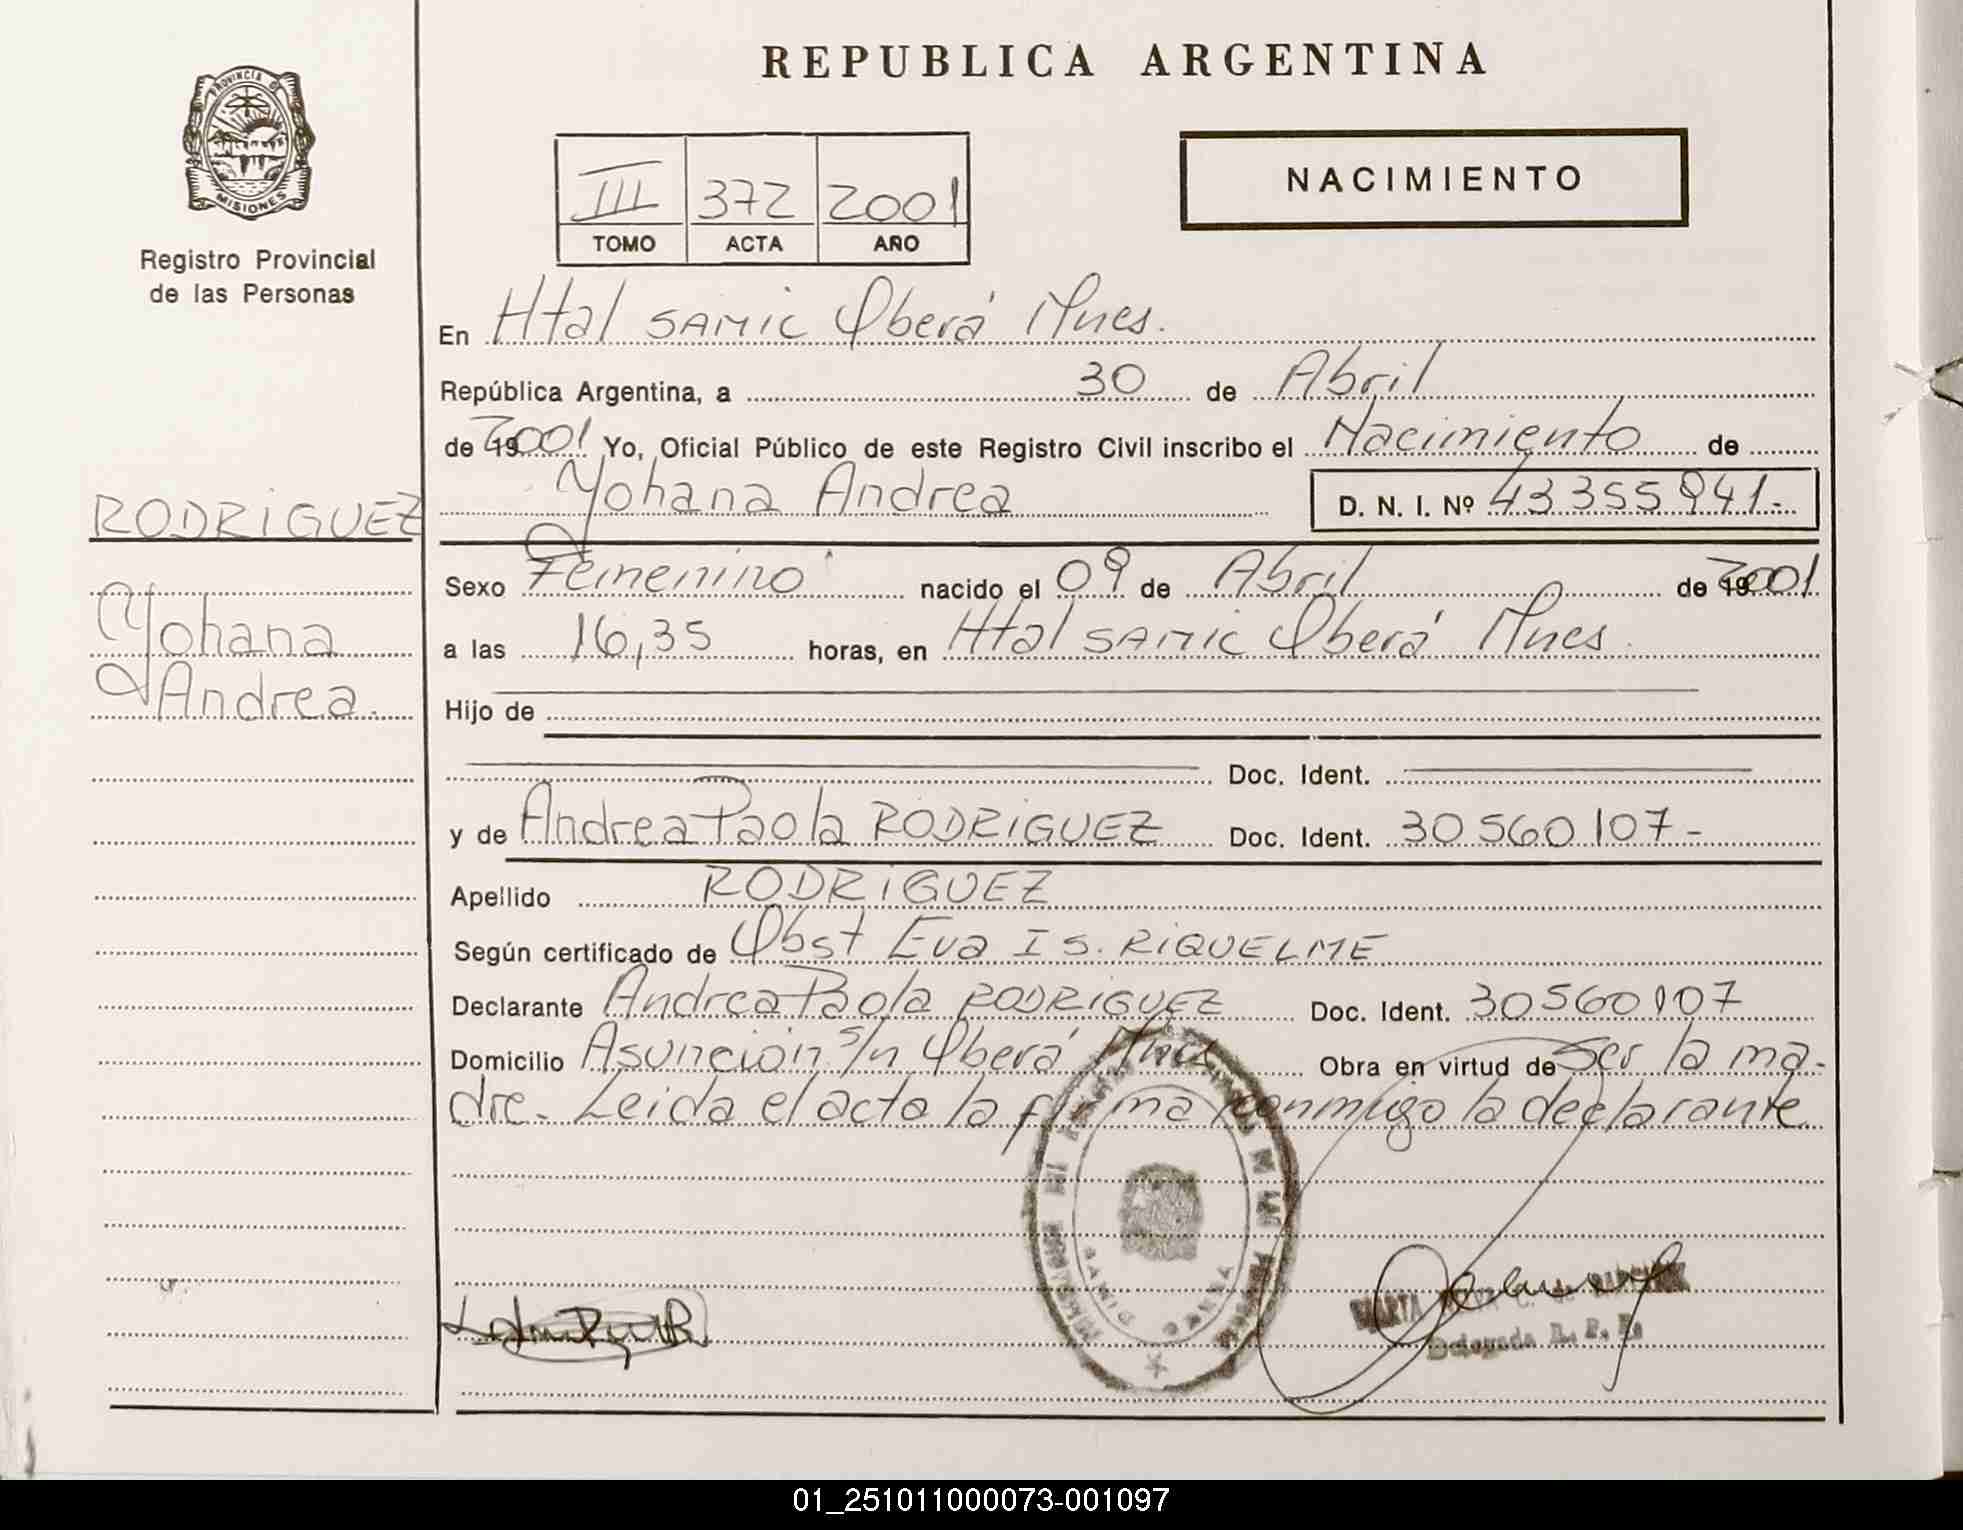 REPUBLICA ARGENTINA
PROVINCIA DE
MISIONES
Registro Provincial
de las Personas
III 372 2001
TOMO ACTA AÑO
NACIMIENTO
En Htal SAMIC Oberá Mnes.
República Argentina, a 30 de Abril
de 2001 Yo, Oficial Público de este Registro Civil inscribo el Nacimiento de
Yohana Andrea D. N. I. Nº 43355941.-
RODRIGUEZ
Yohana
Andrea.
Sexo Femenino nacido el 09 de Abril de 2001
a las 16,35 horas, en Htal SAMIC Oberá Mnes.
Hijo de
Doc. Ident.
y de Andrea Paola RODRIGUEZ Doc. Ident. 30560107-
Apellido RODRIGUEZ
Según certificado de Obst Eva IS. RIQUELME
Declarante Andrea Paola RODRIGUEZ Doc. Ident. 30560107
Domicilio Asunción s/n Oberá Mnes Obra en virtud de ser la ma-
dre. Leida el acta la firma conmigo la declarante
Delegada
01_251011000073-001097